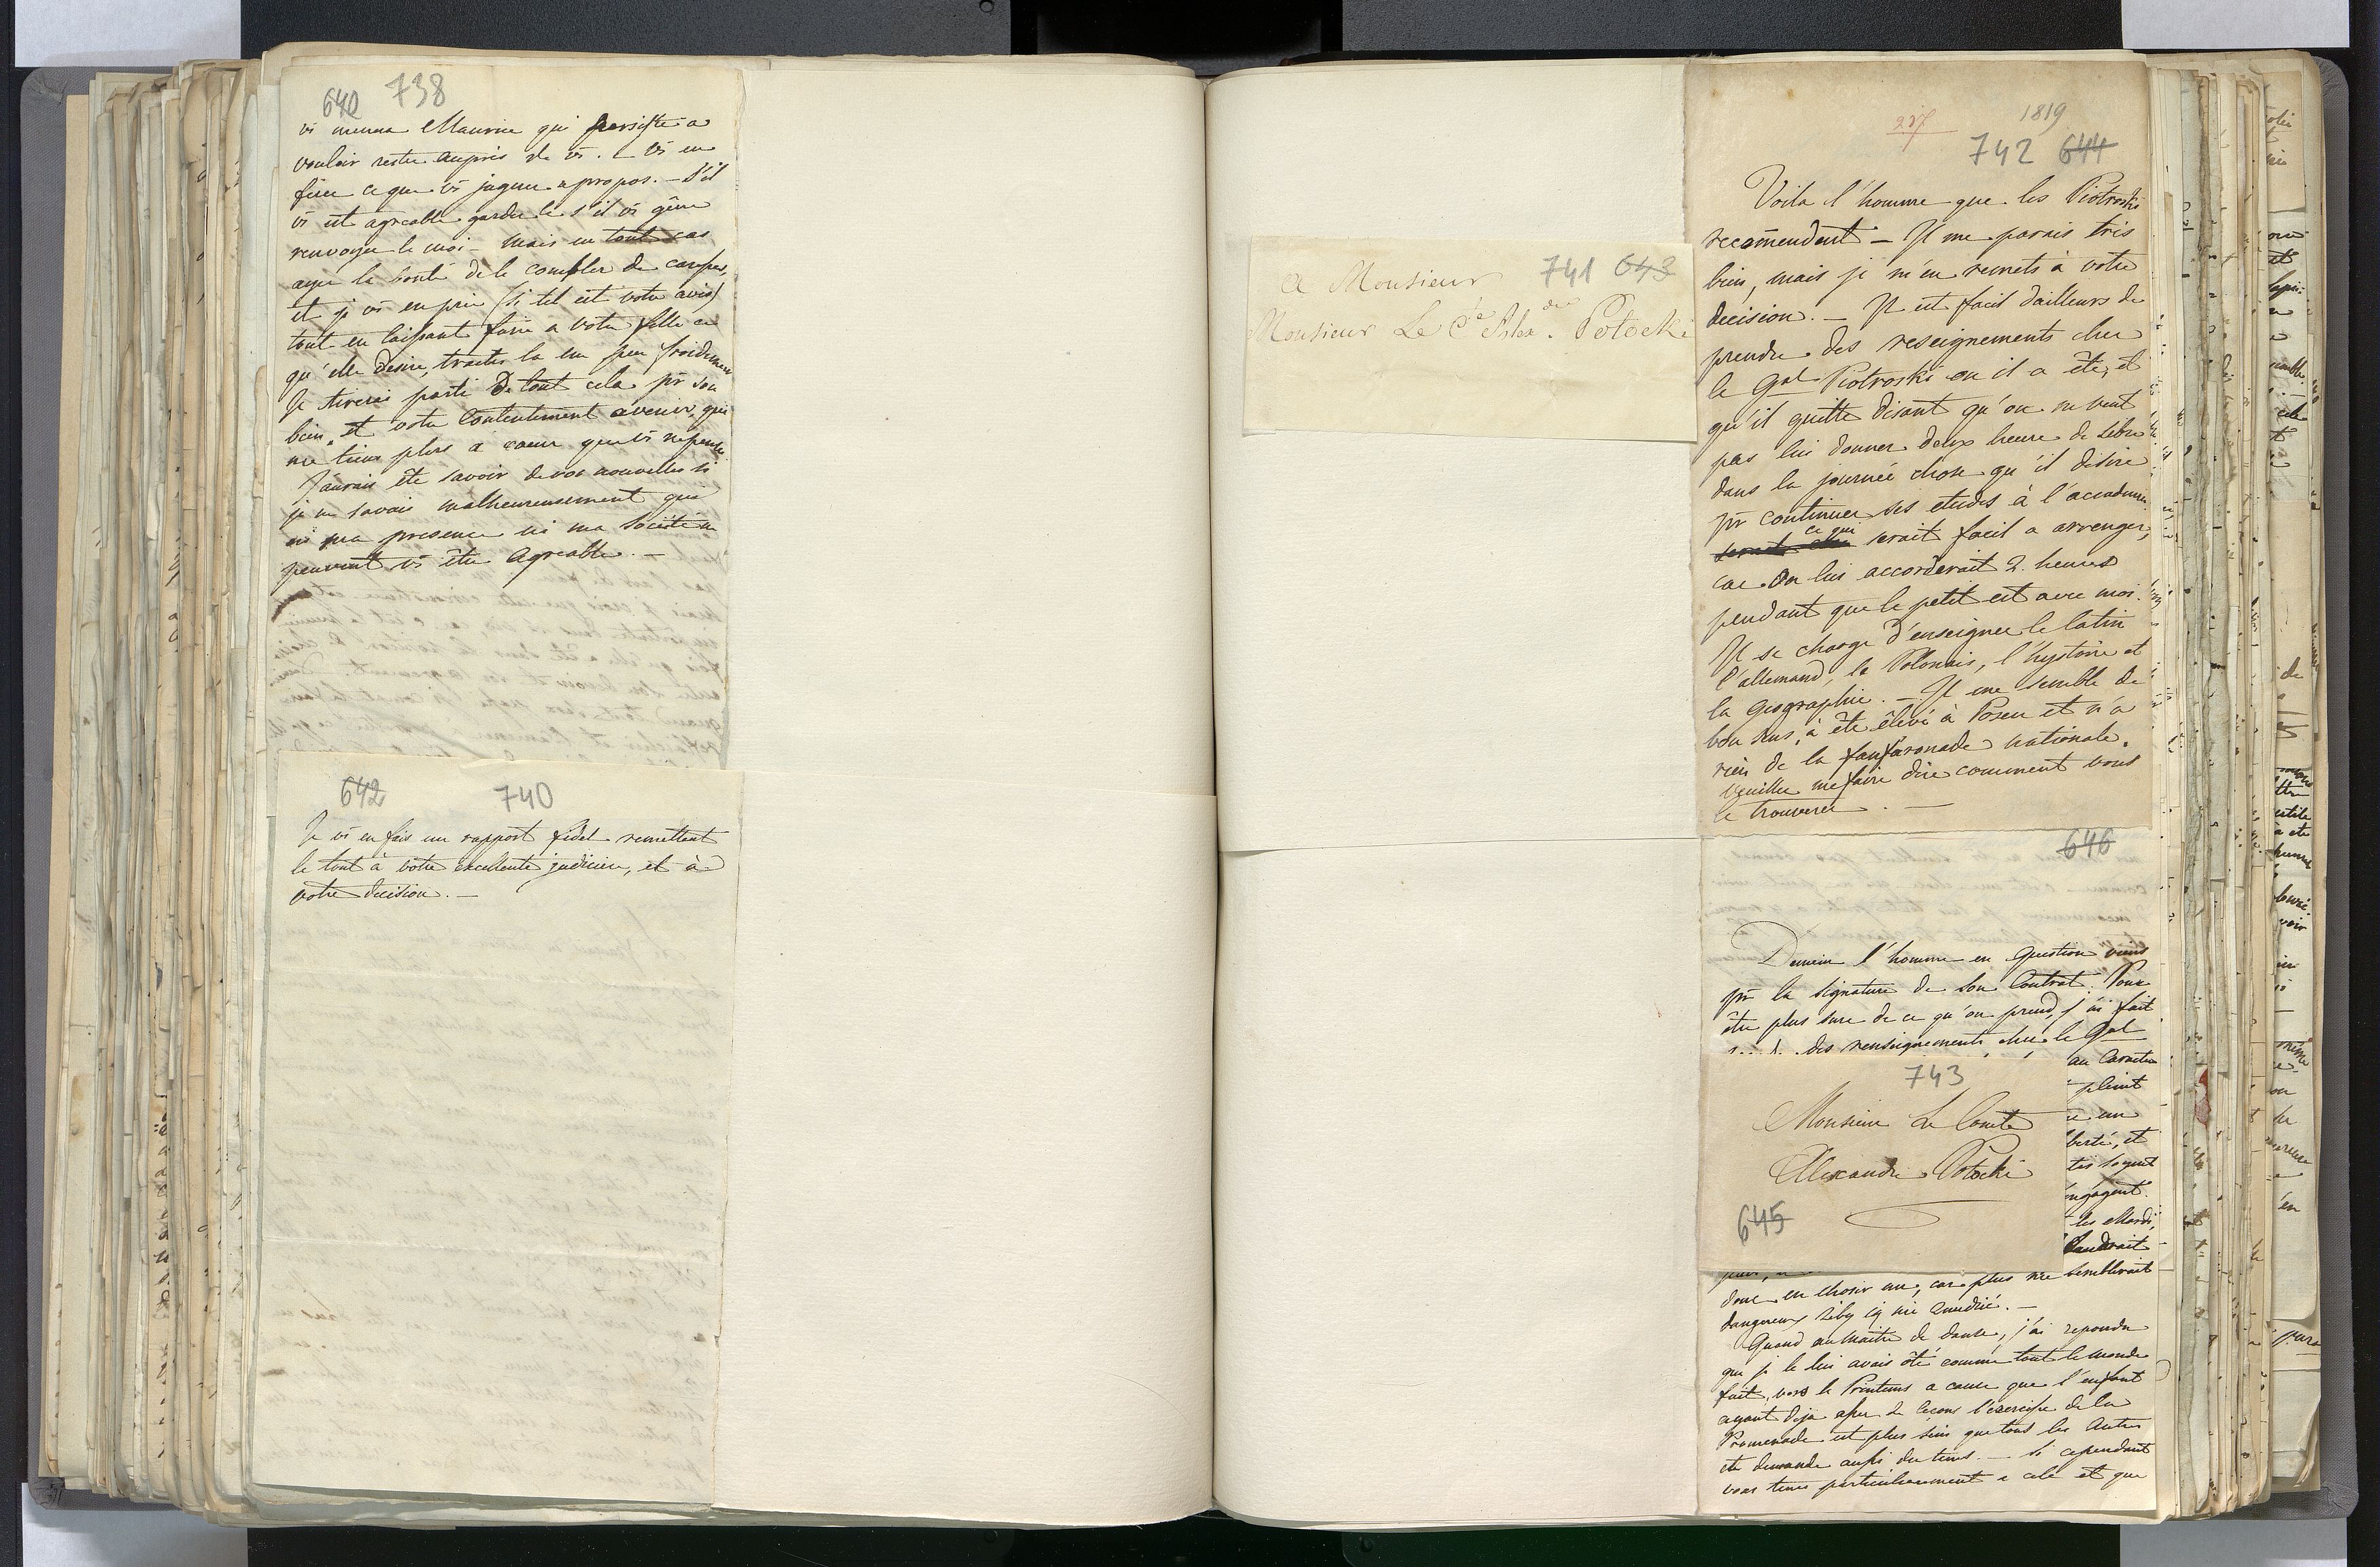 640 738
menna Maurice qui persiste a
vouloir rester aupres de vs. – vs en
ferez ce que vs jugerez apropos. – S'il
vs est agreable gardez le s'il vs gêne
renvoyez le moi – mais en tout cas
ayez la bonté de le combler de caresses,
et je vs en prie (si tel est votre avis)
tout en laissant faire a votre fille ce
qu'elle desire, traitez la un peu froidement
Je tirerai parti de tout cela pr son
bien, et votre contentement avenir, qui
me tient plus à coeur que vs ne pensez
J'aurais été savoir de vos nouvelles si
je ne savais malheureusement que
ni ma presence ni ma société ne
peuvent vs être agreable. –
642 740
Je vs en fais un rapport fidel remettant
le tout à votre excellente judiciere, et à
votre decision. –
741 643
A Monsieur
Monsieur Le Cte Alex.dre Potocki
237 1819
742 644
Voila l'homme que les Piotroski
recomendent – Il me parais tres
bien, mais je m'en remets à votre
decision. – Il est facil d'ailleurs de
prendre des reseignements chez
le Gal Piotroski ou il a été, et
qu'il quitte disant qu'on ne veut
pas lui donner deux heure de libre
dans la journée chose qu'il desire
pr continuer ses etudes à l'accademie
ce qui
serait facil a arrenger,
car on lui accorderait 2. heures
pendant que le petit est avec moi.
Il se charge d'enseigner le latin
l'allemand, le Polonais, l'hystoire et
la geographie. – Il me semble de
bon sens, a été élevé à Posen et n'a
rien de la fanfaronade nationale.
Veuillez me faire dire comment vous
le trouverez. –
646
Demain l'homme en question viens
pr la signature de son Contrat. Pour
être plus sure de ce qu'on prend, j'ai fait
des renseignements chez le Gal
au Caractere
plaint
un
berté, et
tes soyent
engagent.
les Mardi,
faudrait
743
Monsieur Le Comte
Alexandre Potocki
645
donc en choisir un, car plus me semblerait
dangereux
Quand au Maitre de danse, j'ai repondu
que je le lui avais ôté comme tout le monde
fait, vers le Printems a cause que l'enfant
ayant deja assez de leçons l'exercisse de la
Promenade est plus sain que tous les autres
et demande aussi du tems. – si cependant
vous tenez particulierement a cela et que